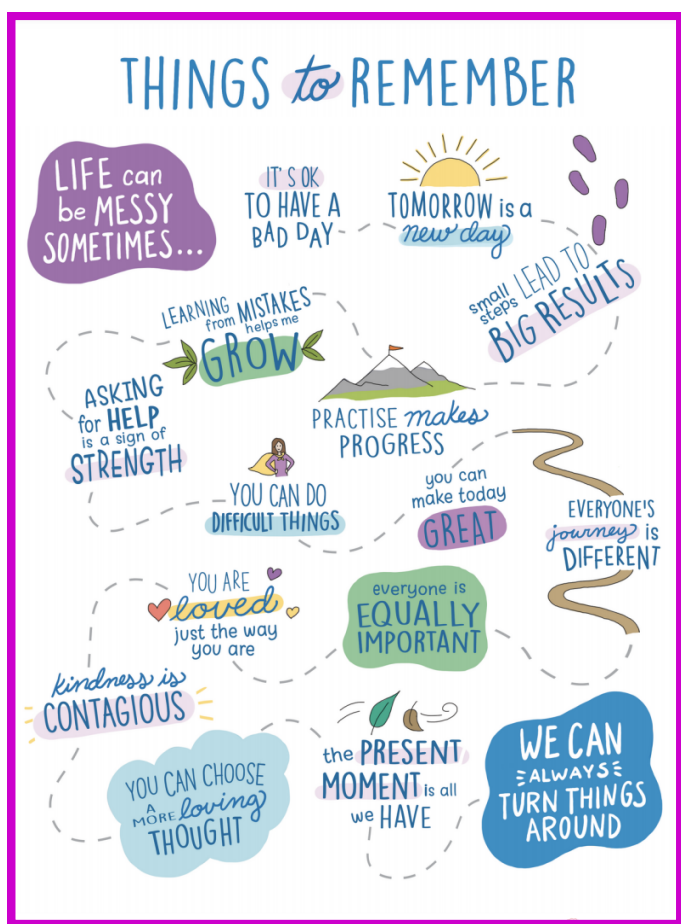 THINGS to REMEMBER
LIFE can
be MESSY
SOMETIMES...
IT'S OK
TO HAVE A
BAD DAY
TOMORROW is a
new day
small
steps LEAD TO
BIG RESULTS
LEARNING
from MISTAKES
helps me
GROW
ASKING
for HELP
is a sign of
STRENGTH
PRACTISE makes
PROGRESS
YOU CAN DO
DIFFICULT THINGS
you can
make today
GREAT
EVERYONE'S
journey is
DIFFERENT
YOU ARE
loved
just the way
you are
everyone is
EQUALLY
IMPORTANT
kindness is
CONTAGIOUS
YOU CAN CHOOSE
A
MORE loving
THOUGHT
the PRESENT
MOMENT is all
we HAVE
WE CAN
ALWAYS
TURN THINGS
AROUND